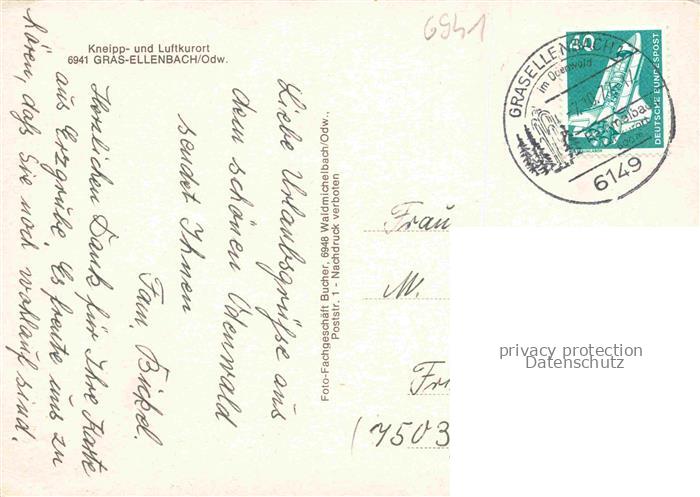 6941
Kneipp- und Luftkurort
6941 GRAS-ELLENBACH/Odw.
Liebe Urlaubsgrüße aus
dem schönen Odenwald
sendet Ihnen
Fam. Bickel.
Herzlichen Dank für Ihre Karte
aus Erzgrube. Es freute uns zu
hören, daß Sie noch wohlauf sind.
Foto-Fachgeschäft Bucher, 6948 Waldmichelbach/Odw.,
Poststr. 1 - Nachdruck verboten
GRASELLENBACH
im Odenwald
6149
40
DEUTSCHE BUNDESPOST
Frau
M.
(7503
privacy protection
Datenschutz